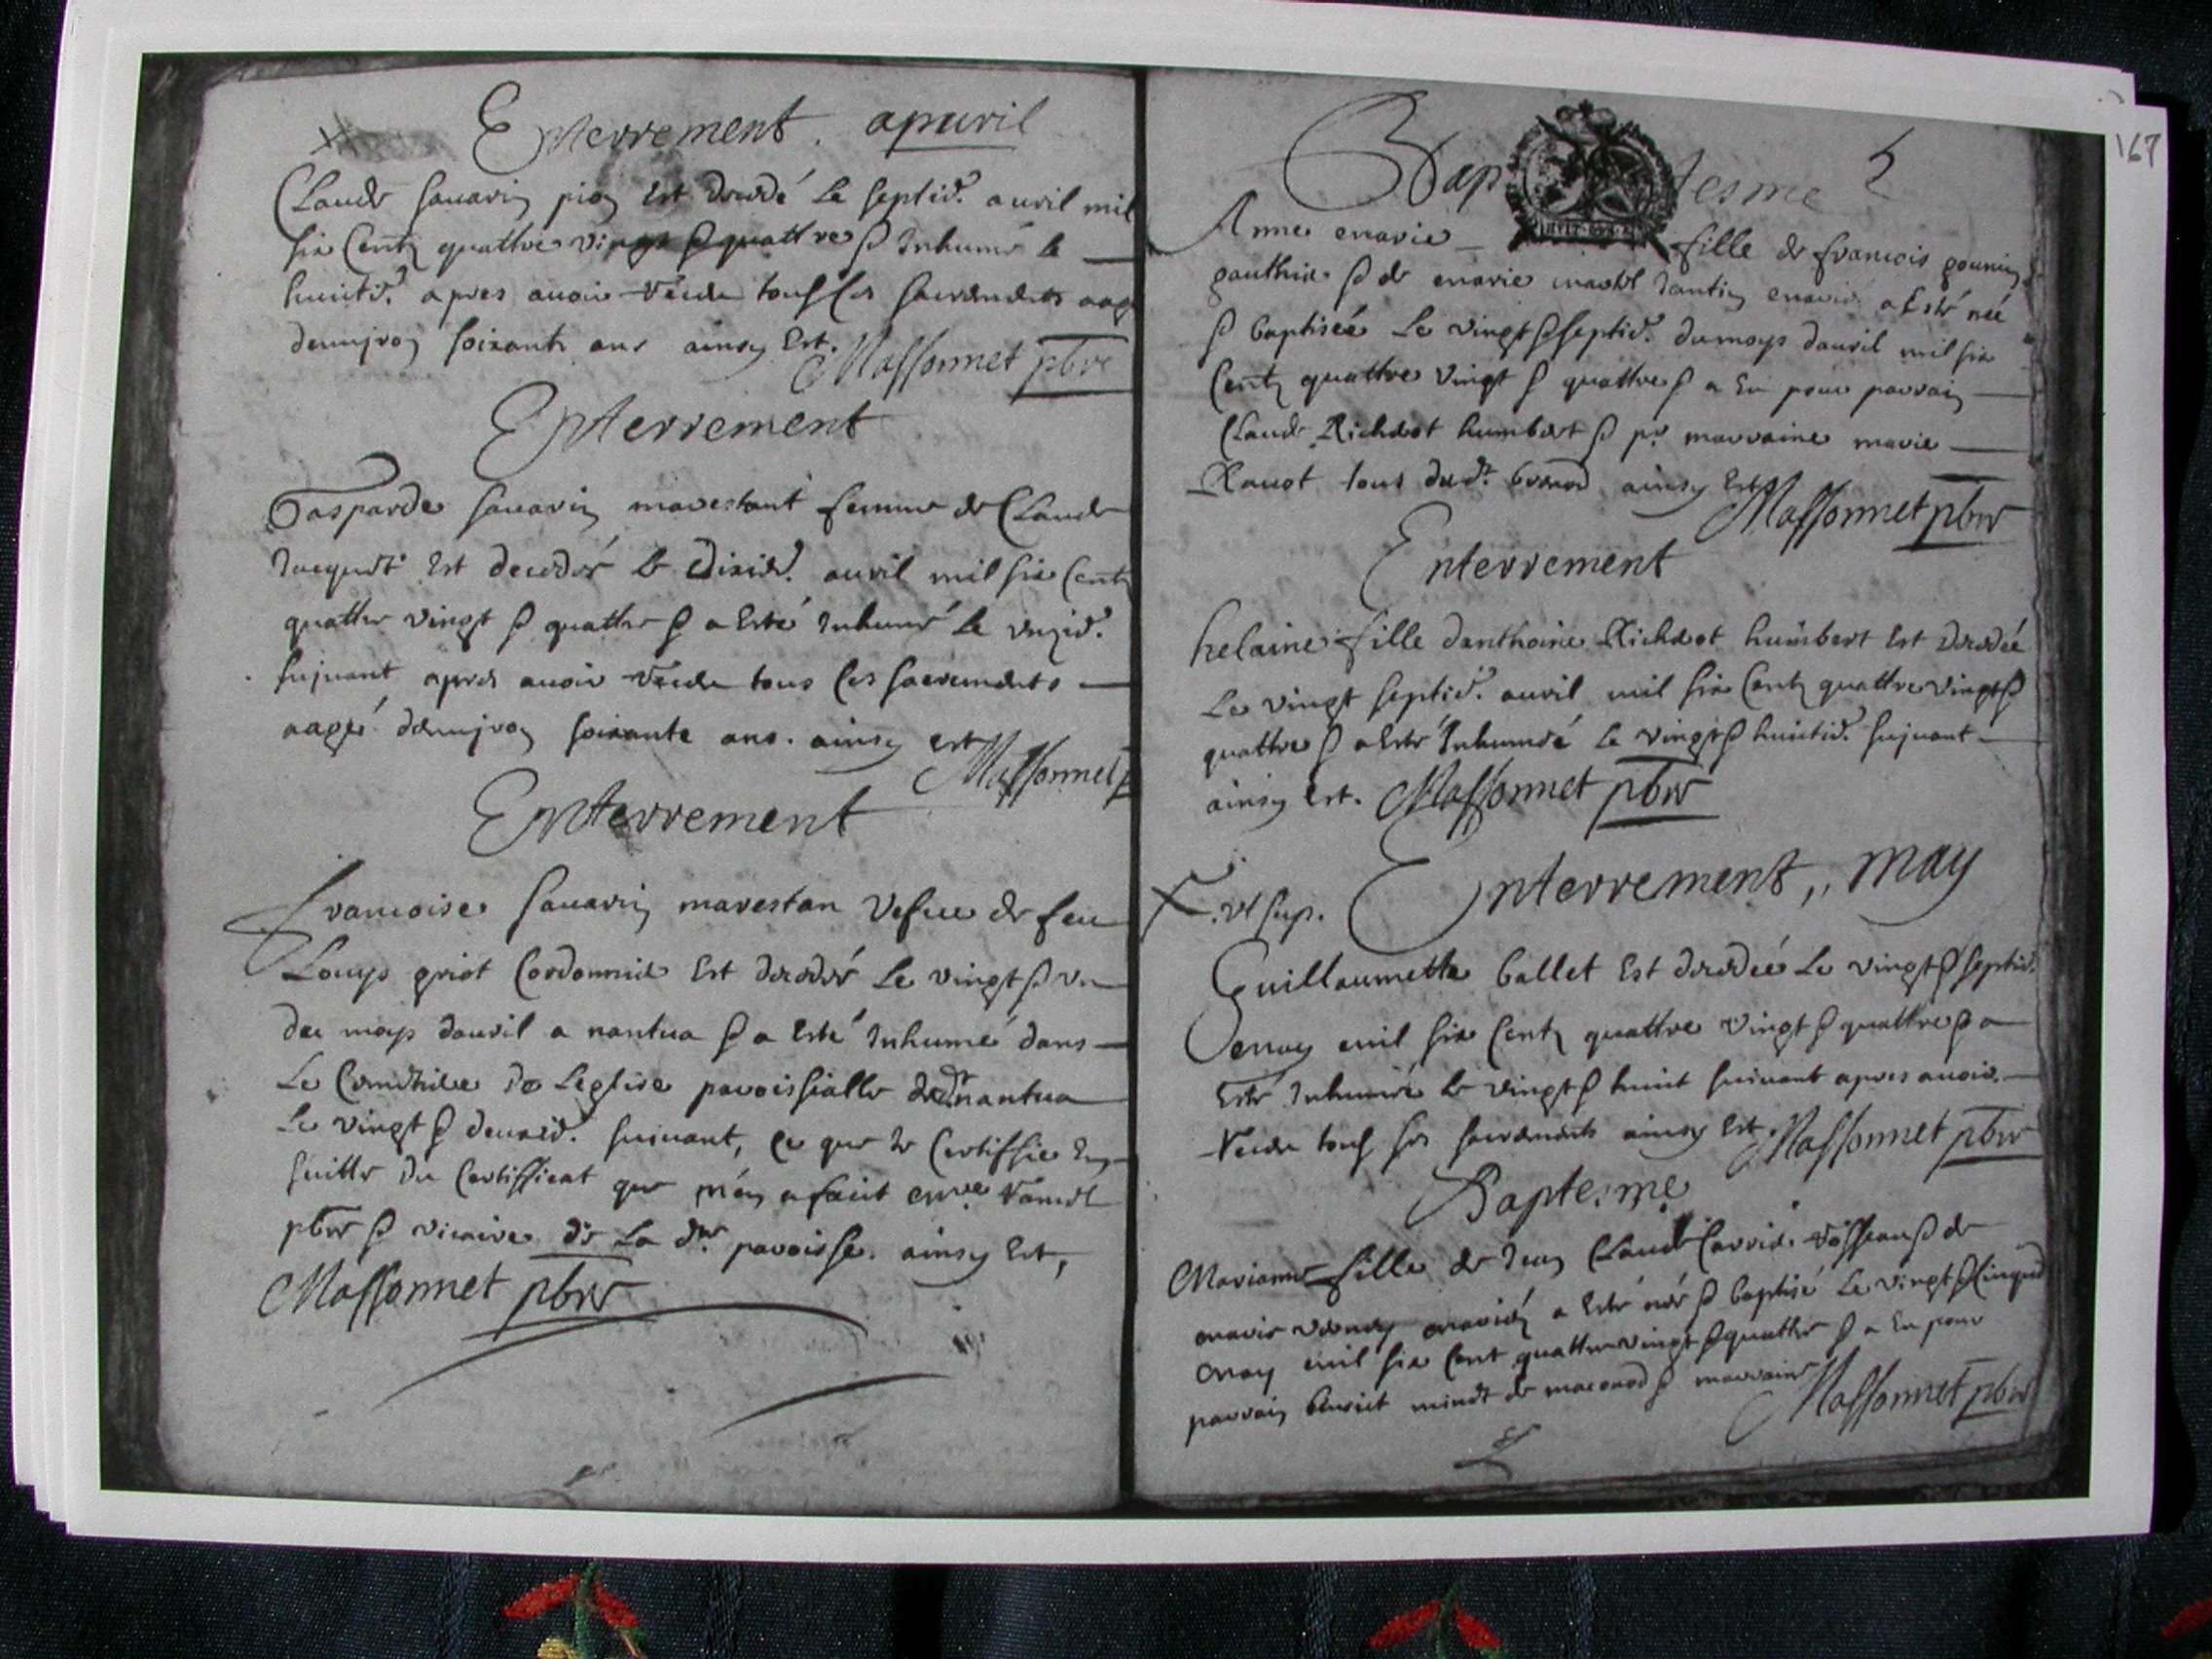 Enterrement. apuril
Claude sauarin pion est decedé le septie. auril mil
six Centz quattre vingt & quattre & Inhumé le
huictie. apres auoir Receu tous les sacrements aagé
denuiron soixante ans ainsy est. Massonnet pbre
Enterrement
Gasparde sauarin marestant femme de Claude
Jacquet est decedée le dixie. auril mil six Centz
quattre vingt & quattre & a esté Inhumé le vnzie.
suiuant apres auoir Receu tous les sacrements
aagé denuiron soixante ans. ainsy est Massonnet p
Enterrement
francoise sauarin marestan vefue de feu
Louys griot Cordonnie est decedée Le vingt & vn
du moys dauril a nantua & a esté Inhumé dans
Le Cemethiere de Leglise paroissialle dedt nantua
Le vingt & deuxie. suiuant, ce que Je Certiffie en
suitte du Certifficat que m'en a faict
pbre & vicaire de La dte paroisse. ainsy est,
Massonnet pbre
167
Baptesme
Anne marie fille de francois
gauthie & de marie a Esté née
& baptisée Le vingt & septie. du moys dauril mil six
Centz quattre vingt & quattre & a Eu pour parrain
Claude Richerot humbert & pr marraine marie
Rauot tous dudt ainsy est Massonnet pbre
Enterrement
helaine fille danthoine Richerot humbert est decedée
Le vingt septie. auril mil six Centz quattre vingt &
quattre & a esté Inhumée le vingt & huictie. suiuant
ainsy est. Massonnet pbre
vt sup. Enterrement,, may
Guillaumette ballet est decedée Le vingt & septie.
may mil six Centz quattre vingt & quattre & a
Esté Inhumée le vingt & huict suiuant apres auoir
Receu tous ses sacrements ainsy est. Massonnet pbre
Baptesme
Marianne fille de Jean Claude Carrie. & de
marie mariéz a Esté née & baptisé Le vingt & cinquie
may mil six Cent quattre vingt & quattre & a Eu pour
parrain benoit de & marraine Massonnet pbre